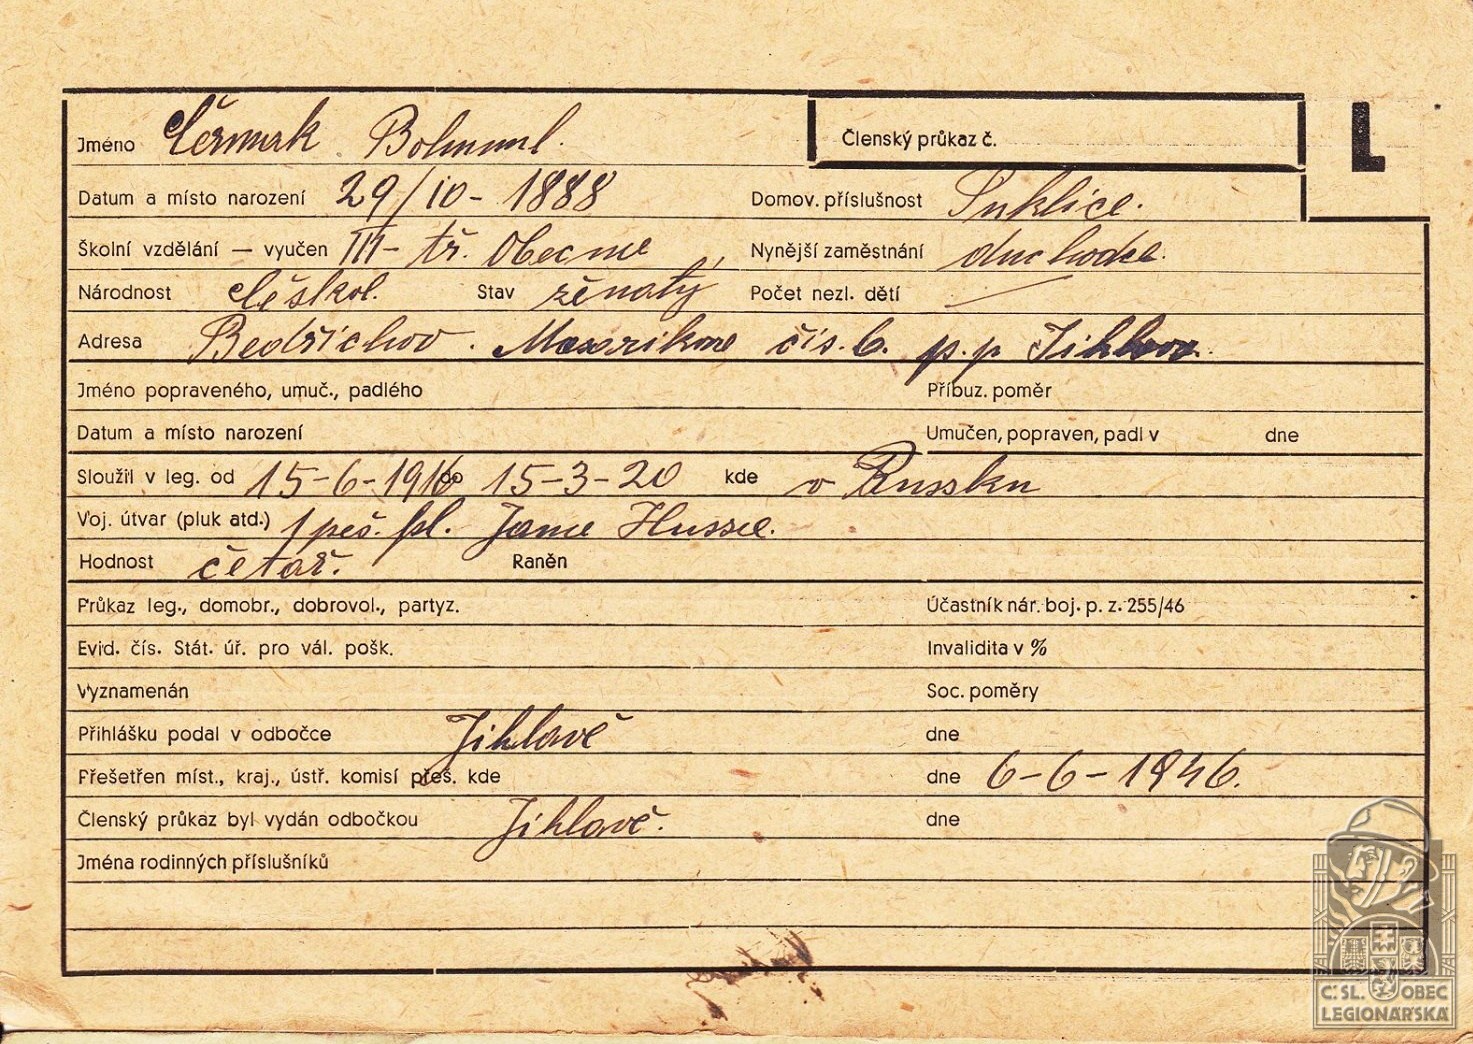 Jméno Čermak Bohumil. Členský průkaz č. L
Datum a místo narození 29/10-1888 Domov. příslušnost Suklice.
Školní vzdělání — vyučen III-tř. Obecne Nynější zaměstnání duchodce.
Národnost Českosl. Stav ženatý Počet nezl. dětí —
Adresa Bedřichov. čís. 6. p.p Jihlava.
Jméno popraveného, umuč., padlého Příbuz. poměr
Datum a místo narození Umučen, popraven, padl v dne
Sloužil v leg. od 15-6-1916 do 15-3-20 kde v Russku
Voj. útvar (pluk atd.) 1 peš. pl. Jana Husse.
Hodnost četař. Raněn
Průkaz leg., domobr., dobrovol., partyz. Účastník nár. boj. p. z. 255/46
Evid. čís. Stát. úř. pro vál. pošk. Invalidita v %
Vyznamenán Soc. poměry
Přihlášku podal v odbočce Jihlavě dne
Přešetřen míst., kraj., ústř. komisí přeš. kde dne 6-6-1946.
Členský průkaz byl vydán odbočkou Jihlavě. dne
Jména rodinných příslušníků
Č. SL. OBEC
LEGIONÁŘSKÁ